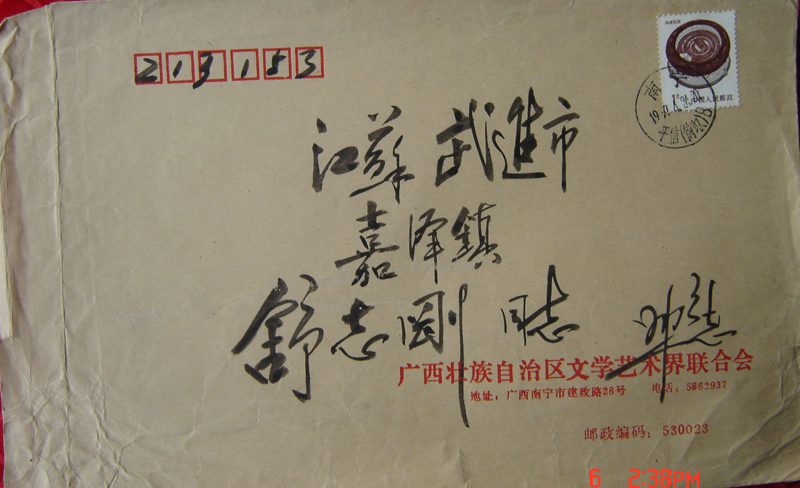 213153
江蘇 武進市
嘉泽鎮
舒志剛 同志
广西壮族自治区文学艺术界联合会
地址：广西南宁市建政路28号 电话：5862937
邮政编码：530023
中国人民邮政
6 2:38PM